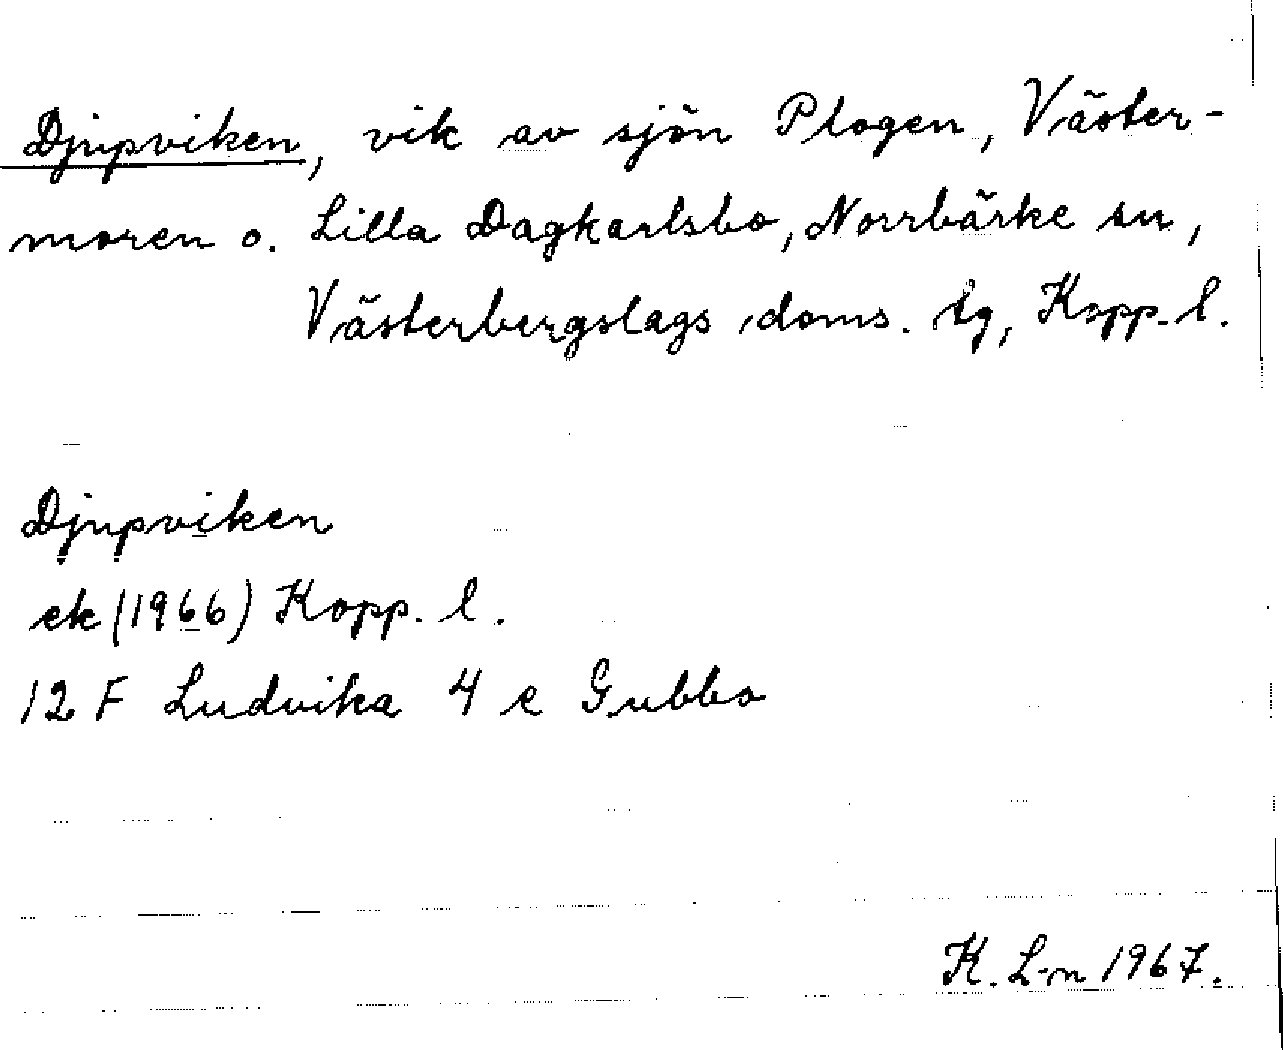 Djupviken, vik av sjön Plogen, Väster-
moren o. Lilla Dagkarlsbo, Norrbärke sn,
Västerbergslags doms. tg, Kopp. l.
Djupviken
ek (1966) Kopp. l.
12 F Ludvika 4 e Gubbo
K. L-m 1967.